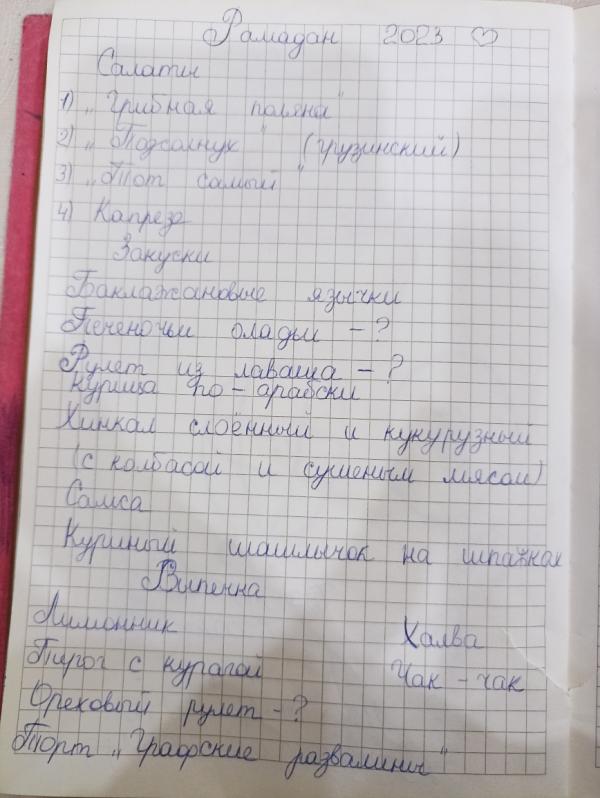 Рамадан 2023 ♡
Салаты
1) "Грибная поляна"
2) "Подсолнух" (грузинский)
3) "Тот самый"
4) Капрезе
Закуски
Баклажановые язычки
Печеночьи оладьи - ?
Рулет из лаваша - ?
Курица по - арабски
Хинкал слоённый и кукурузный
(с колбасой и сушеным мясом)
Самса
Куриный шашлычок на шпажках
Выпечка
Лимонник
Халва
Пирог с курагой
Чак - чак
Ореховый рулет - ?
Торт "Графские развалины"